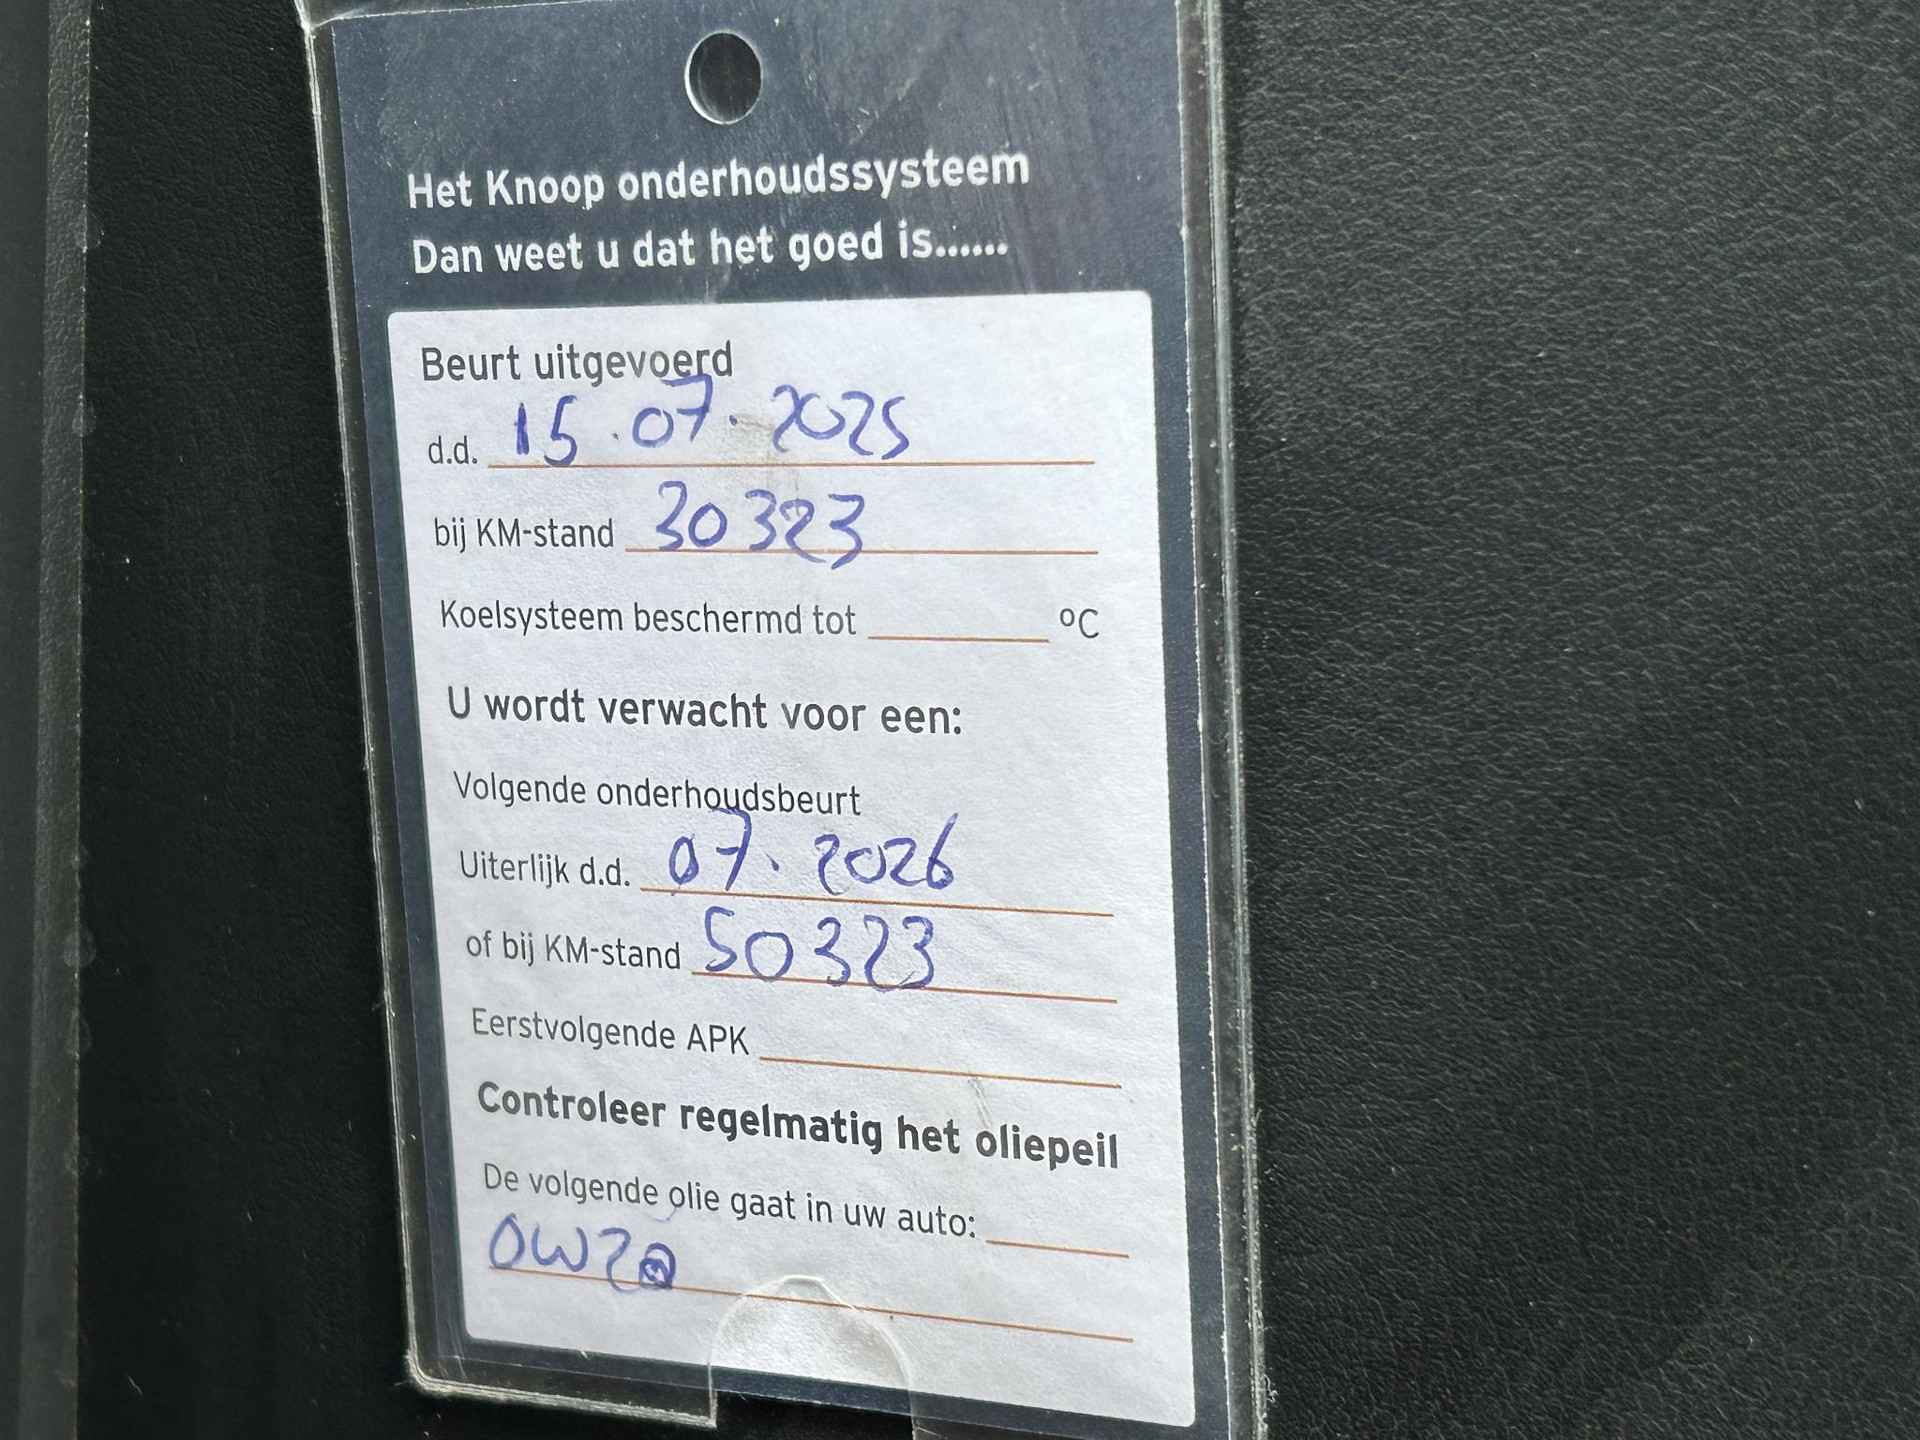 Het Knoop onderhoudssysteem
Dan weet u dat het goed is......
Beurt uitgevoerd
d.d. 15.07.2025
bij KM-stand 30323
Koelsysteem beschermd tot ºC
U wordt verwacht voor een:
Volgende onderhoudsbeurt
Uiterlijk d.d. 07.2026
of bij KM-stand 50323
Eerstvolgende APK
Controleer regelmatig het oliepeil
De volgende olie gaat in uw auto:
0W20